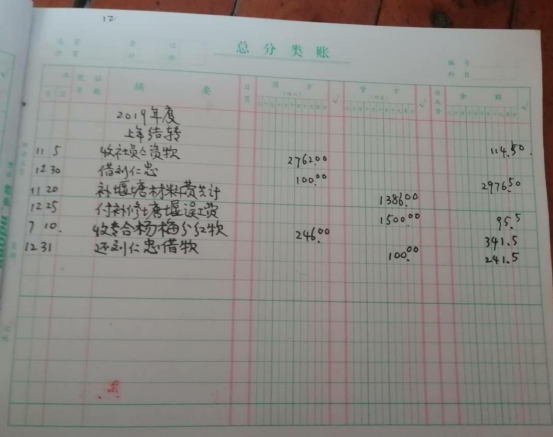 12
总分类账
编号
摘要
借方
贷方
余额
2019年度
上年结转 114.50
11 5 收社员公资款 2762.00
12 30 借刘仁忠 100.00 2976.50
11 20 补堰塘材料费共计 1386.00
12 25 付补修塘堰误工费 1500.00 95.5
7 10. 收专合杨梅分红款 246.00 341.5
12 31 还刘仁忠借款 100.00 241.5